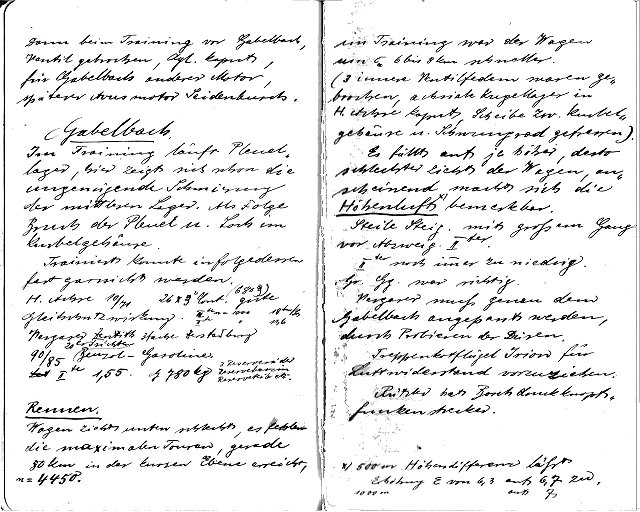 dann beim Training vor Gabelbach,
Ventil gebrochen, Cyl. kaputt,
für Gabelbach anderer Motor,
späterer Ausmotor Seidenbusch.
Gabelbach.
Im Training läuft Pleuel-
lager, hier zeigt sich schon die
ungenügende Schmierung
der mittleren Lager. Als Folge
Bruch der Pleuel u. Loch im
Kurbelgehäuse.
Trainiert konnte infolgedessen
fast garnicht werden.
H. Achse 10/31 26 x 9" Cont. gute (680g)
Gleitschutzwirkung.
Vergaser Zenith starke Zerstäubung
90/85 Benzol-Gasoline
I ter 1,55. G 780 kg
Rennen.
Wagen zieht unten schlecht, es fehlen
die maximalen Touren, gerade
80 km in der kurzen Ebene erreicht,
n = 4450.
im Training war der Wagen
um ca 6 bis 8 km schneller.
(3 innere Ventilfedern waren ge-
brochen, achsiale Kugellager in
H. Achse kaputt, Scheibe zw. Kurbel-
gehäuse u. Schwungrad gefressen).
Es fällt auf je höher, desto
schlechter zieht der Wagen, an-
scheinend macht sich die
Höhenluft x) bemerkbar.
Steile Steig. mit großem Gang
vor Abzweig II ter.
I ter noch immer zu niedrig.
Gr. Gg. war richtig.
Vergaser muß genau dem
Gabelbach angepasst werden,
durch Probieren der Düsen.
Treppenkotflügel Ivion für
Luftwiderstand vorzuziehen.
hat Bosch druckknopf-
funkenstecker.
x) 500 m Höhendifferenz läßt
Erhöhung E von 6,3 auf 6,7 zu.
1000 m auf 7,